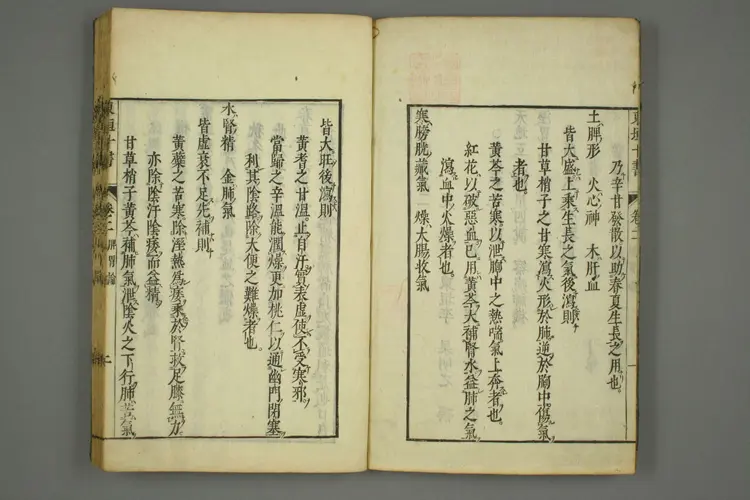 東垣十書
卷二
乃辛甘發散以助春夏生長之用也
土脾形　火心神　木肝血
皆大盛上乘生長之氣後瀉則
甘草梢子之甘寒瀉火形於肺逆於胸中傷氣
者也
黃芩之苦寒以泄胸中之熱喘氣上奔者也
紅花以破惡血已用黃芩大補腎水益肺之氣
瀉血中火燥者也
寒膀胱藏氣　燥大腸收氣
皆大旺後瀉則
黃耆之甘溫止自汗實表虛使不受寒邪
當歸之辛溫能潤燥更加桃仁以通幽門閉塞
利其陰路除大便之難燥者也
水腎精　金肺氣
皆虛衰不足先補則
黃蘗之苦寒除溼熱爲痿乘於腎救足膝無力
亦除陰汗陰痿而益精
甘草梢子黃芩補肺氣泄陰火之下行肺苦氣
東垣十書
卷二
脾胃論